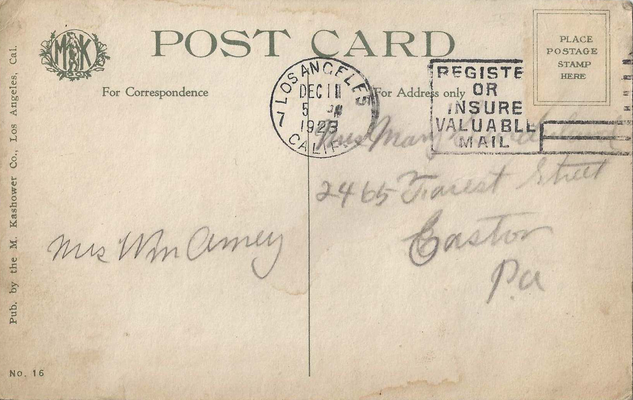 M&K
POST CARD
PLACE
POSTAGE
STAMP
HERE
For Correspondence
For Address only
LOS ANGELES
DEC 11
5 PM
1923
CALIF.
REGISTE
OR
INSURE
VALUABLE
MAIL
Miss Mary
2465 Forest Street
Easton
Pa
Mrs Wm Amey
Pub. by the M. Kashower Co., Los Angeles, Cal.
No. 16